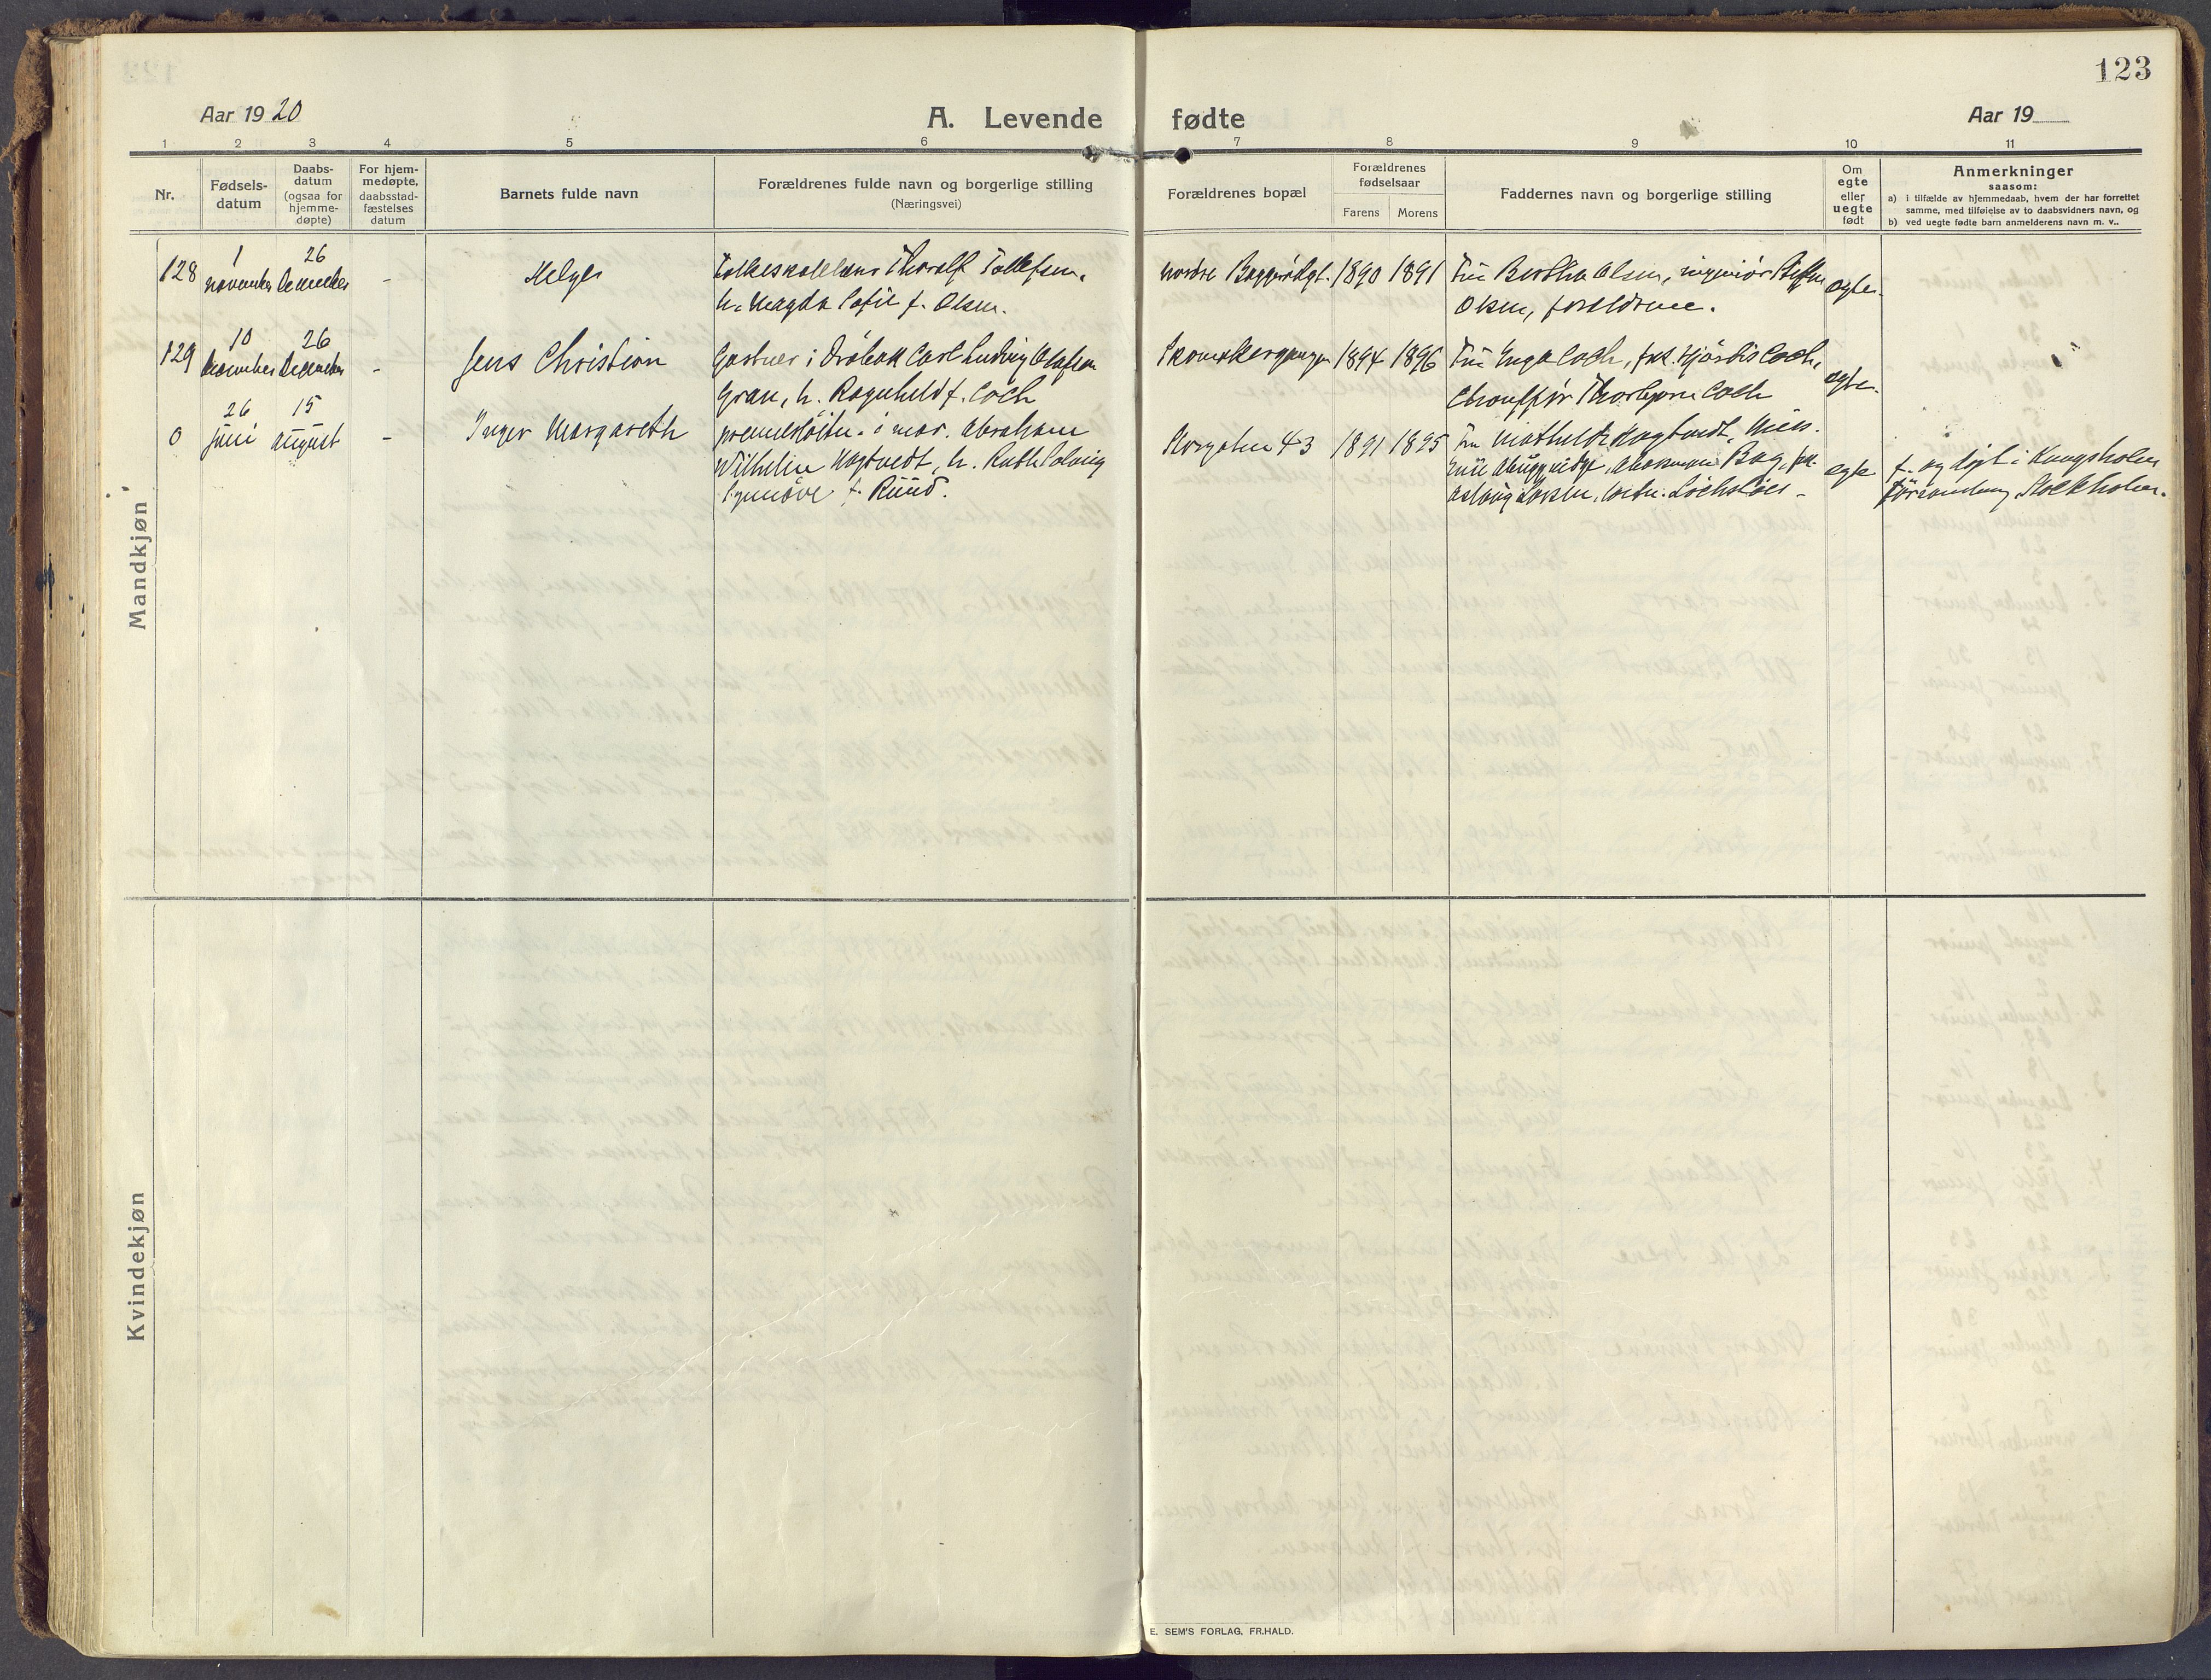 123
Aar 19 20
A. Levende fødte
Aar 19
1 2 3 4 5 6 7 8 9 10 11
Nr.
Fødsels-
datum
Daabs-
datum
(ogsaa for
hjemme-
døpte)
For hjem-
medøpte,
daabsstad-
fæstelses
datum
Barnets fulde navn
Forældrenes fulde navn og borgerlige stilling
(Næringsvei)
Forældrenes bopæl
Forældrenes
fødselsaar
Farens Morens
Faddernes navn og borgerlige stilling
Om
egte
eller
uegte
født
Anmerkninger
saasom:
a) i tilfælde av hjemmedaab, hvem der har forrettet
samme, med tilføielse av to daabsvidners navn, og
b) ved uegte fødte barn anmelderens navn m. v..
Mandkjøn
128
1
november
26
december
-
Helge
Thoralf Tollefsen,
h. Magda Sofie f. Olsen.
nordre
1890 1891
Fru Bertha Olsen, ingeniør Steffen
Olsen, forældrene.
egte.
129
10
november
26
december
-
Jens Christian
Gartner i Drøbak Carl Ludvig Olafsen
Gran, h. Ragnhild f. Coch
1894 1896
Fru Inga Coch, frk. Hjørdis Coch,
Chauffør Thorbjørn Coch
egte.
0
26
juni
15
august
-
Inger Margareth
premierløitn. i mar. Abraham
Wilhelm Hagtvedt, h. Ruth Solveig
Synnøve f. Ruud.
Storgaten 43
1891 1895
Fru Mathilde Hagtvedt,
Aslaug
egte
f. og døpt i Kungsholm
församling, Stockholm.
Kvindekjøn
E. SEM'S FORLAG, FR.HALD.